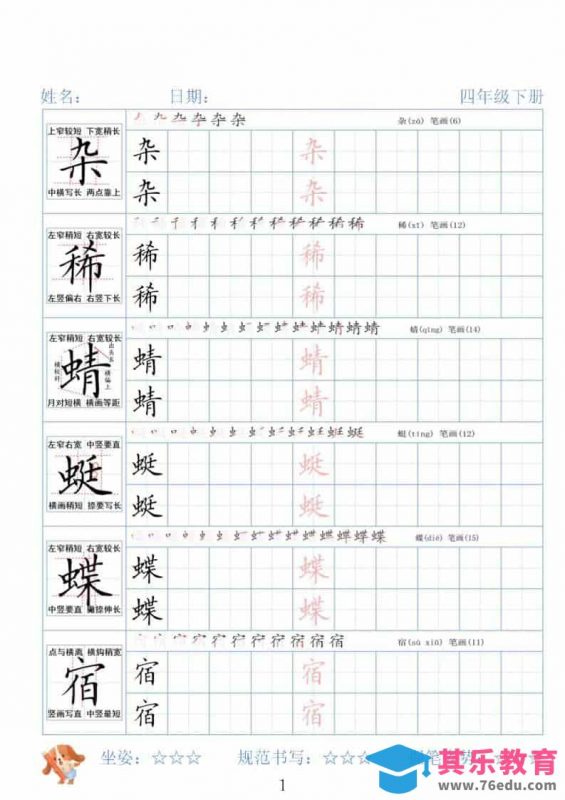 姓名： 日期： 四年级下册
上窄较短 下宽稍长
杂
中横写长 两点靠上
杂(zá) 笔画(6)
杂 杂
杂 杂
左窄稍短 右宽较长
稀
左竖偏右 右竖下长
稀(xī) 笔画(12)
稀 稀
稀 稀
左窄稍短 右宽较长
蜻
月对短横 横画等距
蜻(qīng) 笔画(14)
蜻 蜻
蜻 蜻
左窄右宽 中竖要直
蜓
横画稍短 捺要写长
蜓(tíng) 笔画(12)
蜓 蜓
蜓 蜓
左窄稍短 右宽较长
蝶
中竖要直 撇捺伸长
蝶(dié) 笔画(15)
蝶 蝶
蝶 蝶
点与横离 横钩稍宽
宿
竖画写直 中竖最短
宿(sù xiǔ) 笔画(11)
宿 宿
宿 宿
坐姿：☆☆☆ 规范书写：☆☆☆
其乐教育
www.76edu.com
1